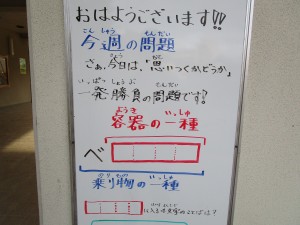 おはようございます!!
今週の問題
さぁ、今日は、「思いつくかどうか」
一発勝負の問題です!!
容器の一種
べ
乗り物の一種
に入る